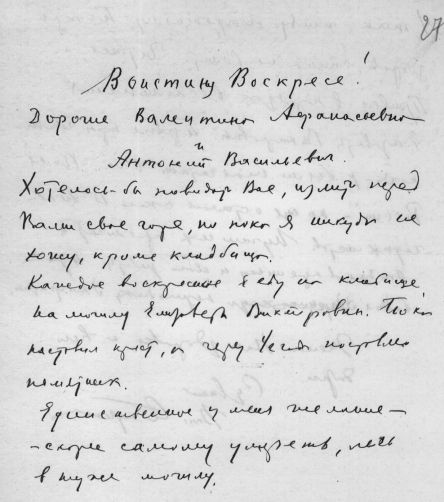 27
Воистину Воскресе!
Дорогие Валентина Афанасьевна
и
Антоний Васильевич.
Хотелось-бы повидать Вас, излить перед
Вами свое горе, но пока я никуда не
хожу, кроме кладбища.
Каждое воскресенье я еду на кладбище,
на могилу Викторовны. Пока
поставил крест, а через поставлю
памятник.
Единственное у меня желание –
– скорее самому умереть, лечь
в ту же могилу.